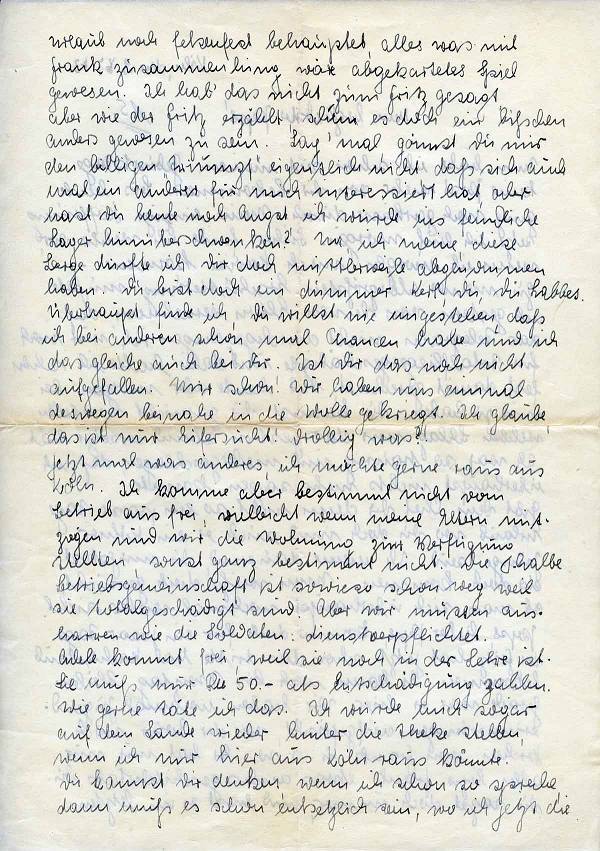 Urlaub noch felsenfest behauptet, alles was mit
Frank zusammenhing wäre abgekartetes Spiel
gewesen. Ich hab' das nicht zum Fritz gesagt
aber wie der Fritz erzählt, schien es doch ein bisschen
anders gewesen zu sein. Sag' mal gönnst Du mir
den billigen Triumpf eigentlich nicht daß sich auch
mal ein anderer für mich interessiert hat, oder
hast Du heute noch Angst ich würde ins feindliche
Lager hinüberschwenken? Na ich meine diese
Sorge dürfte ich Dir doch mittlerweile abgenommen
haben. Du bist doch ein dummer Kerl, Du, Du Labbes.
Überhaupt finde ich, Du willst nie eingestehen, daß
ich bei anderen schon mal Chancen habe und ich
das gleiche auch bei Dir. Ist Dir das noch nicht
aufgefallen. Mir schon! Wir haben uns einmal
deswegen beinahe in die Wolle gekriegt. Ich glaube,
das ist nur Eifersucht! Drollig was?
Jetzt mal was anderes ich möchte gerne raus aus
Köln. Ich komme aber bestimmt nicht vom
Betrieb aus frei, vielleicht wenn meine Eltern mit-
zögen und wir die Wohnung zur Verfügung
stellten sonst ganz bestimmt nicht. Die halbe
Betriebsgemeinschaft ist sowieso schon weg weil
sie totalgeschädigt sind. Aber wir müssen aus-
harren wie die Soldaten: dienstverpflichtet.
kommt frei, weil sie noch in der Lehre ist.
Sie muß nur 50.- als Entschädigung zahlen.
Wie gerne täte ich das. Ich würde mich sogar
auf dem Lande wieder hinter die Theke stellen,
wenn ich nur hier aus Köln raus könnte.
Du kannst Dir denken, wenn ich schon so spreche
dann muß es schon entsetzlich sein, wo ich jetzt die